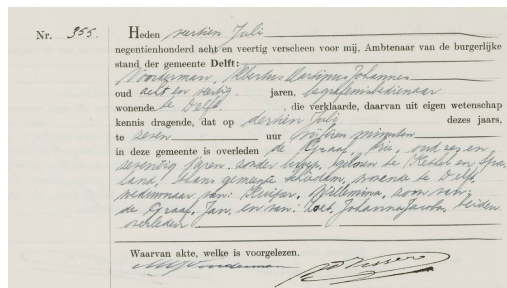 Nr. 355. Heden veertien Juli
negentienhonderd acht en veertig verscheen voor mij, Ambtenaar van de burgerlijke
stand der gemeente Delft:
Noorderman, Albertus Martinus Johannes
oud acht en veertig jaren, begrafenisbedienaar
wonende te Delft, die verklaarde, daarvan uit eigen wetenschap
kennis dragende, dat op dertien Juli dezes jaars,
te zeven uur vijftien minuten
in deze gemeente is overleden de Graaf, Arie, oud zes en
zeventig jaren, zonder beroep, geboren te Kethel en Spa-
land, thans gemeente Schiedam, wonende te Delft,
weduwnaar van: Kuiper, Willemina, zoon van:
de Graaf, Jan, en van: Johanna Jacoba, beiden
overleden
Waarvan akte, welke is voorgelezen.